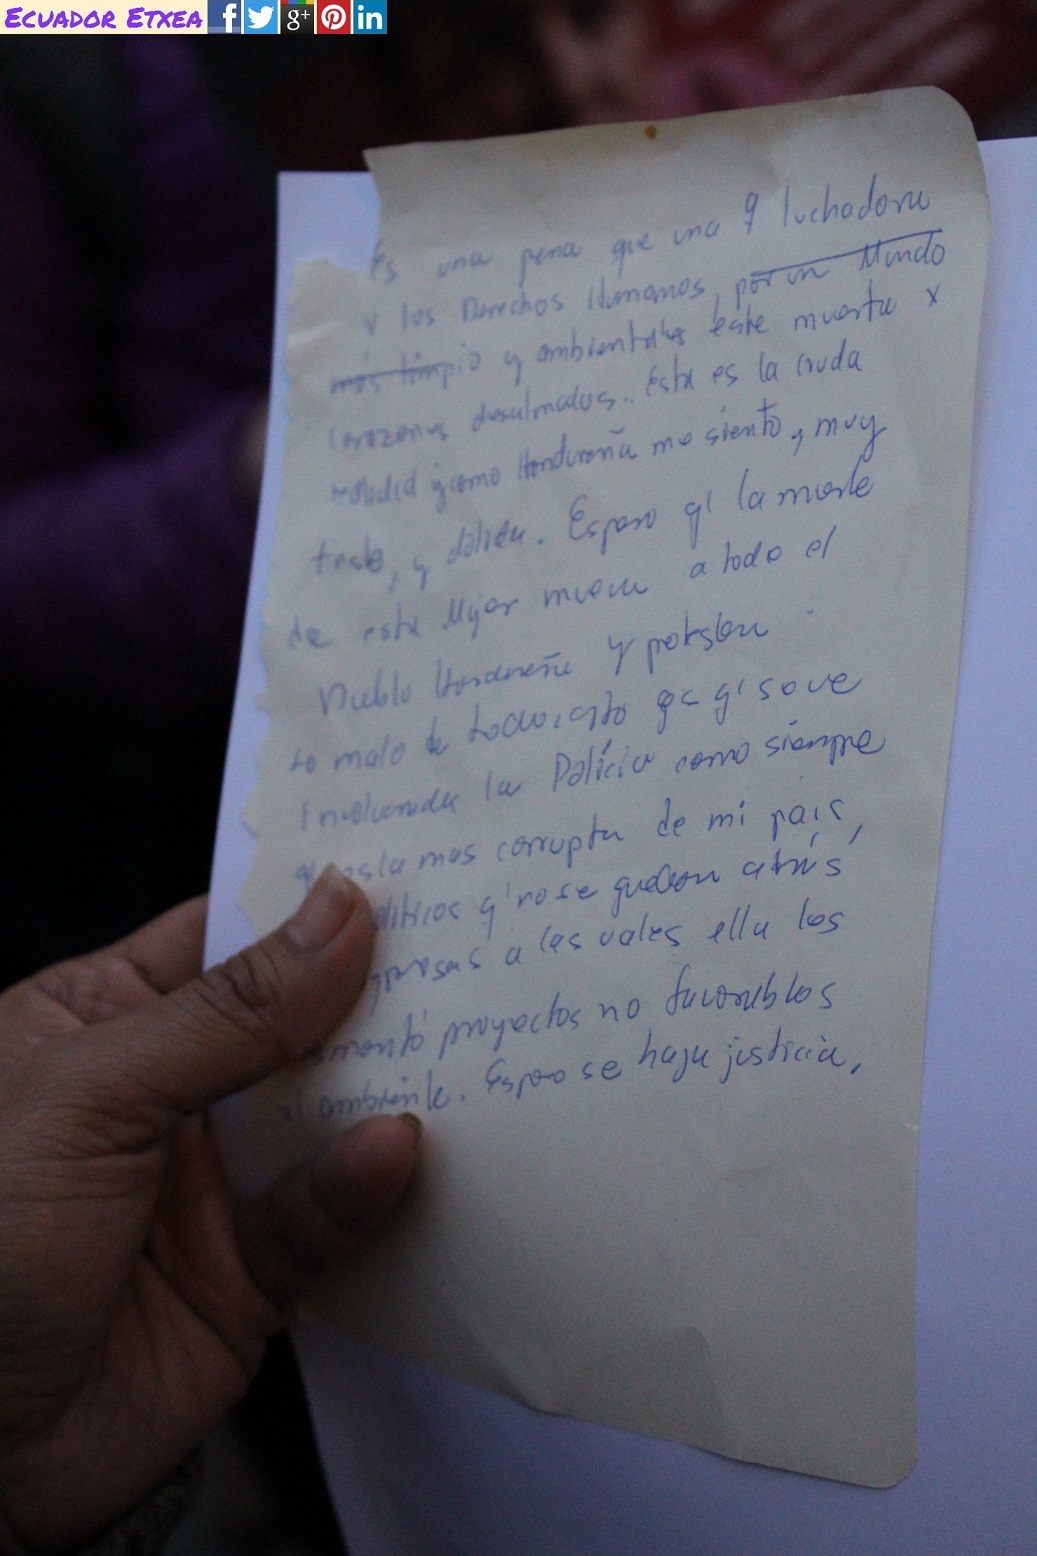 ECUADOR ETXEA f g+ in
Es una pena que una luchadora
x los Derechos Humanos, por un Mundo
más limpio y ambientales este muerta x
corazones desalmados. Esta es la cruda
realidad y como Hondureña me siento, muy
triste, y dolida. Espero q' la muerte
de esta Mujer mueva a todo el
Pueblo Hondureño y
Lo malo de todo esto es q' se ve
Involucrada la Policia como siempre
es la mas corrupta de mi país,
q' no se quedan atrás
a las cuales ella los
proyectos no favorables
al ambiente. Espero se haga justicia,